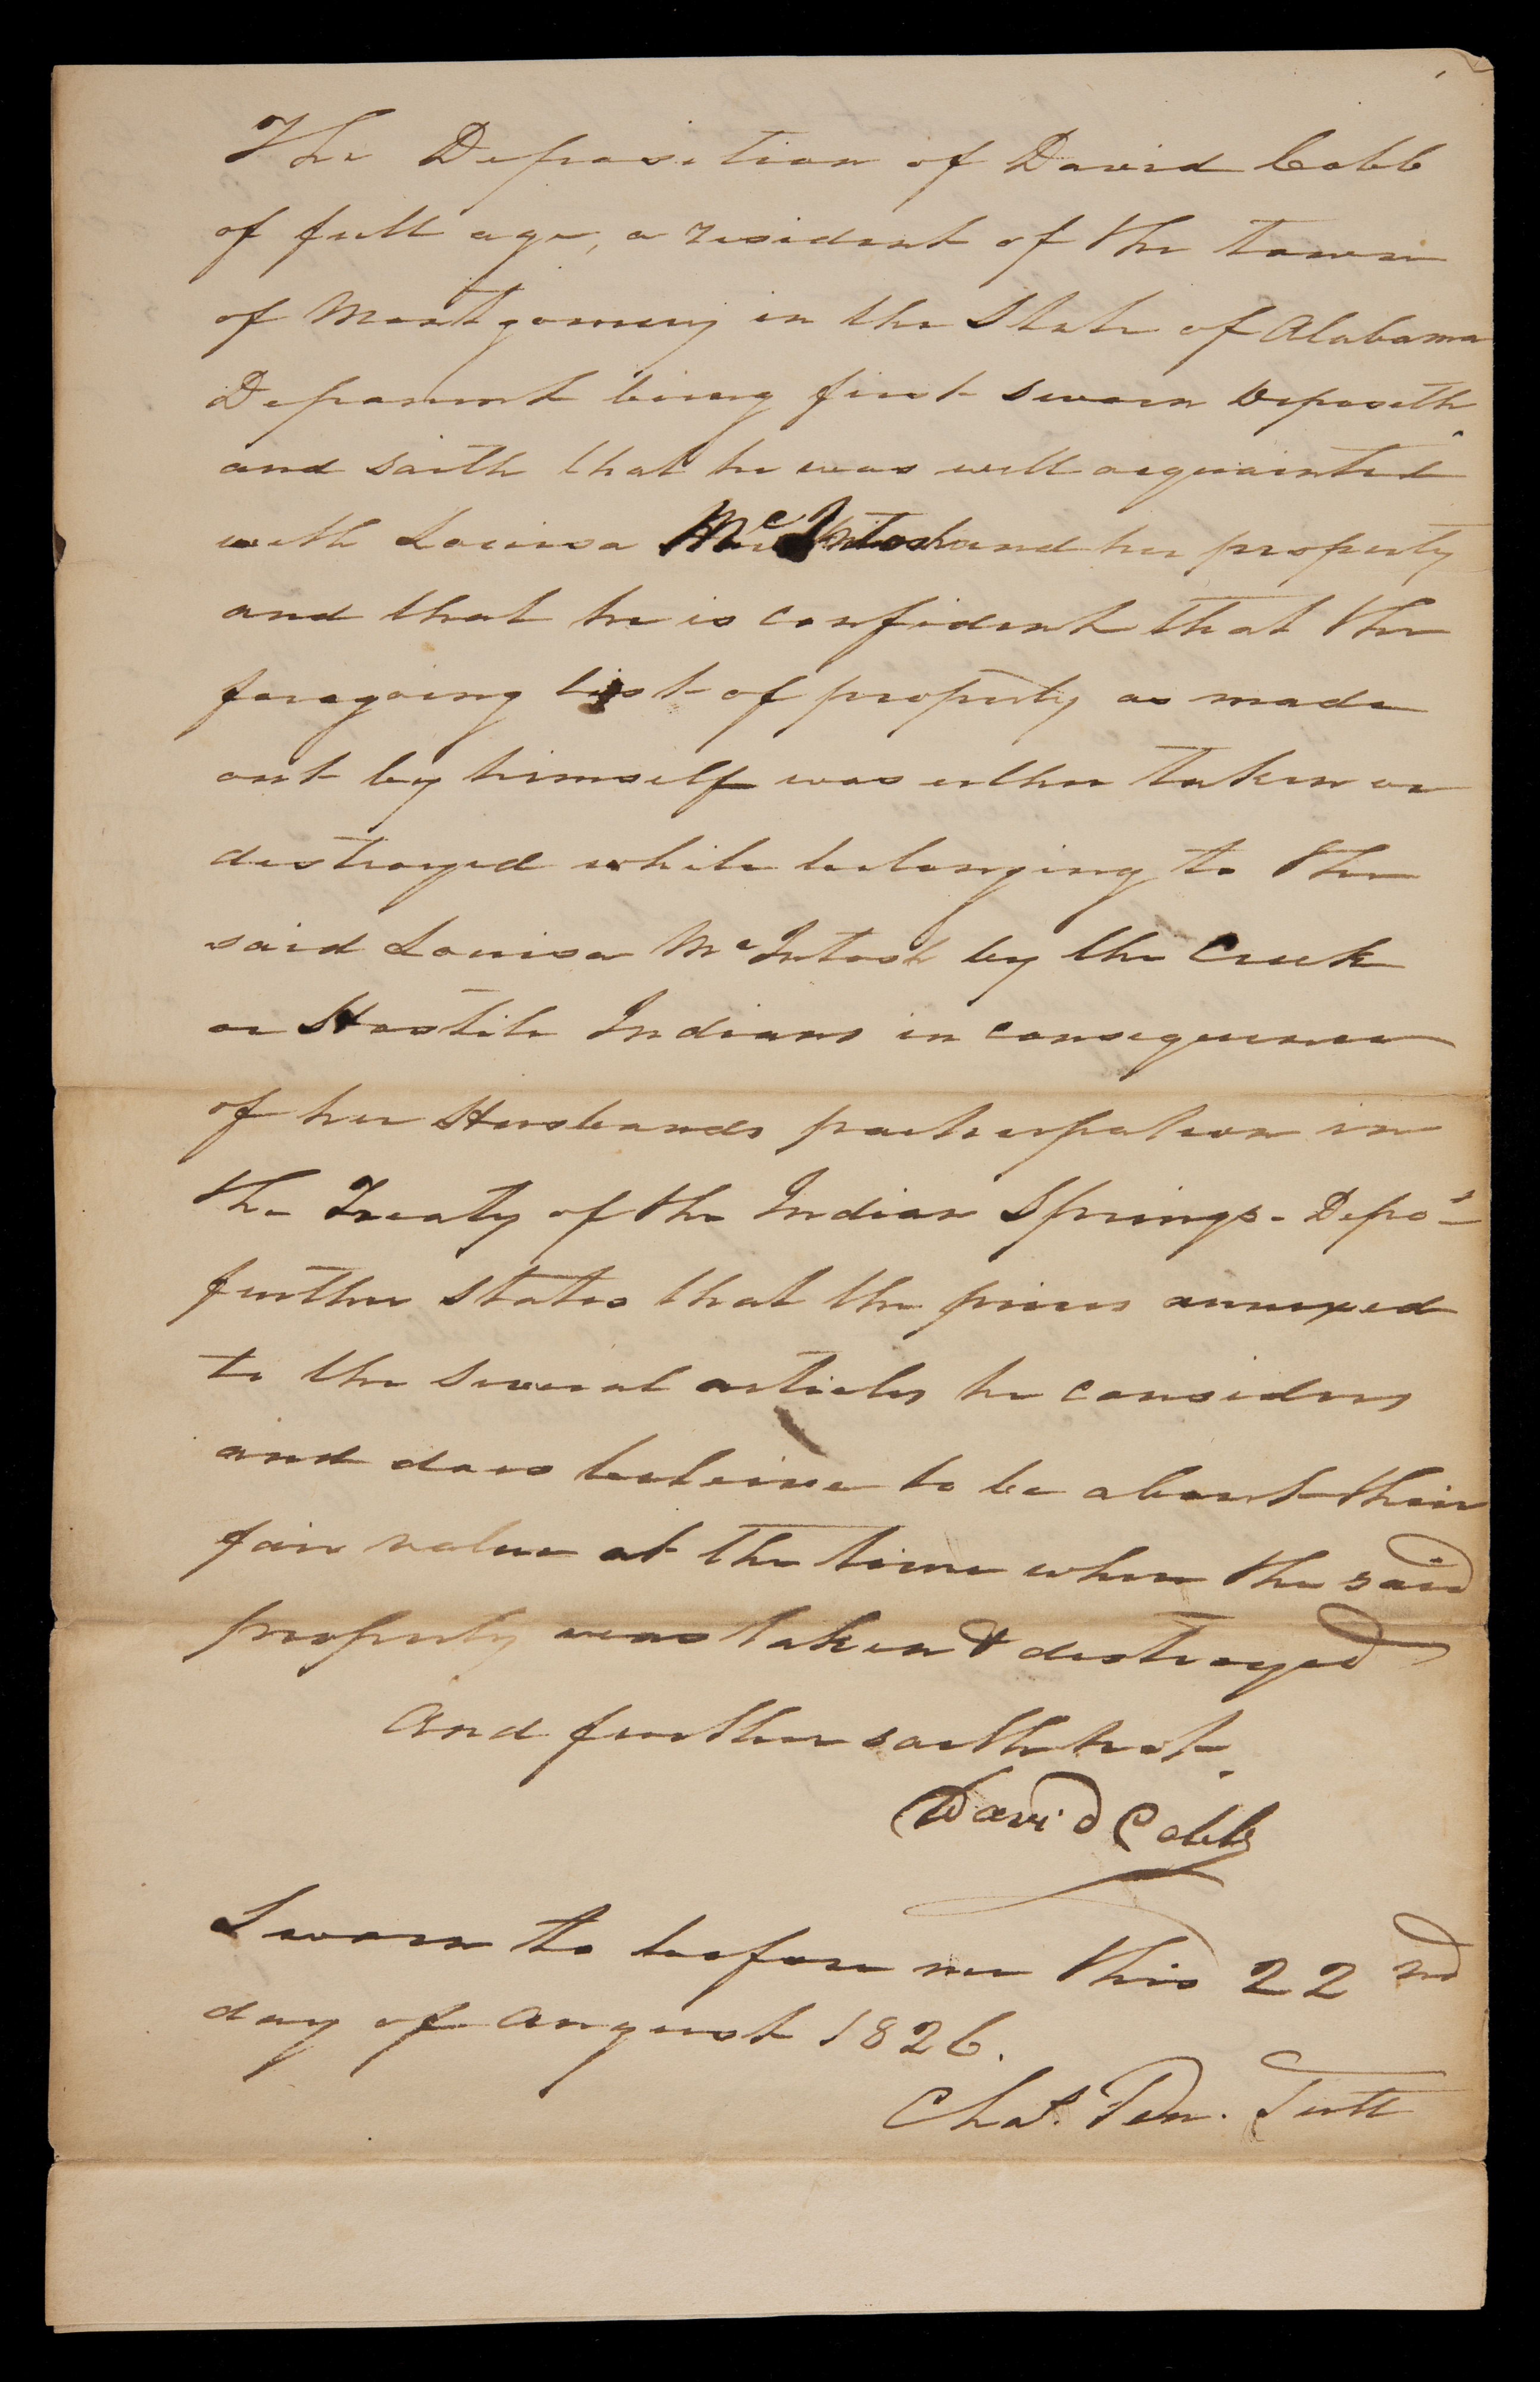 The Deposition of David Cobb
of full age, a resident of the town
of Montgomery in the State of Alabama
Deponent being first sworn Deposeth
and saith that he was well acquainted
with Louisa McIntosh and her property
and that he is confident that the
foregoing list of property as made
out by himself was either taken or
destroyed while belonging to the
said Louisa McIntosh by the Creek
or Hostile Indians in consequence
of her Husbands participation in
the Treaty of the Indian Springs - Depo't
further states that the prices annexed
to the several articles he considers
and does beleive to be about their
fair value at the time when the said
property was taken & destroyed
And further saith not.
David Cobb
Sworn to before me this 22nd
day of August 1826.
Chas. Tutt